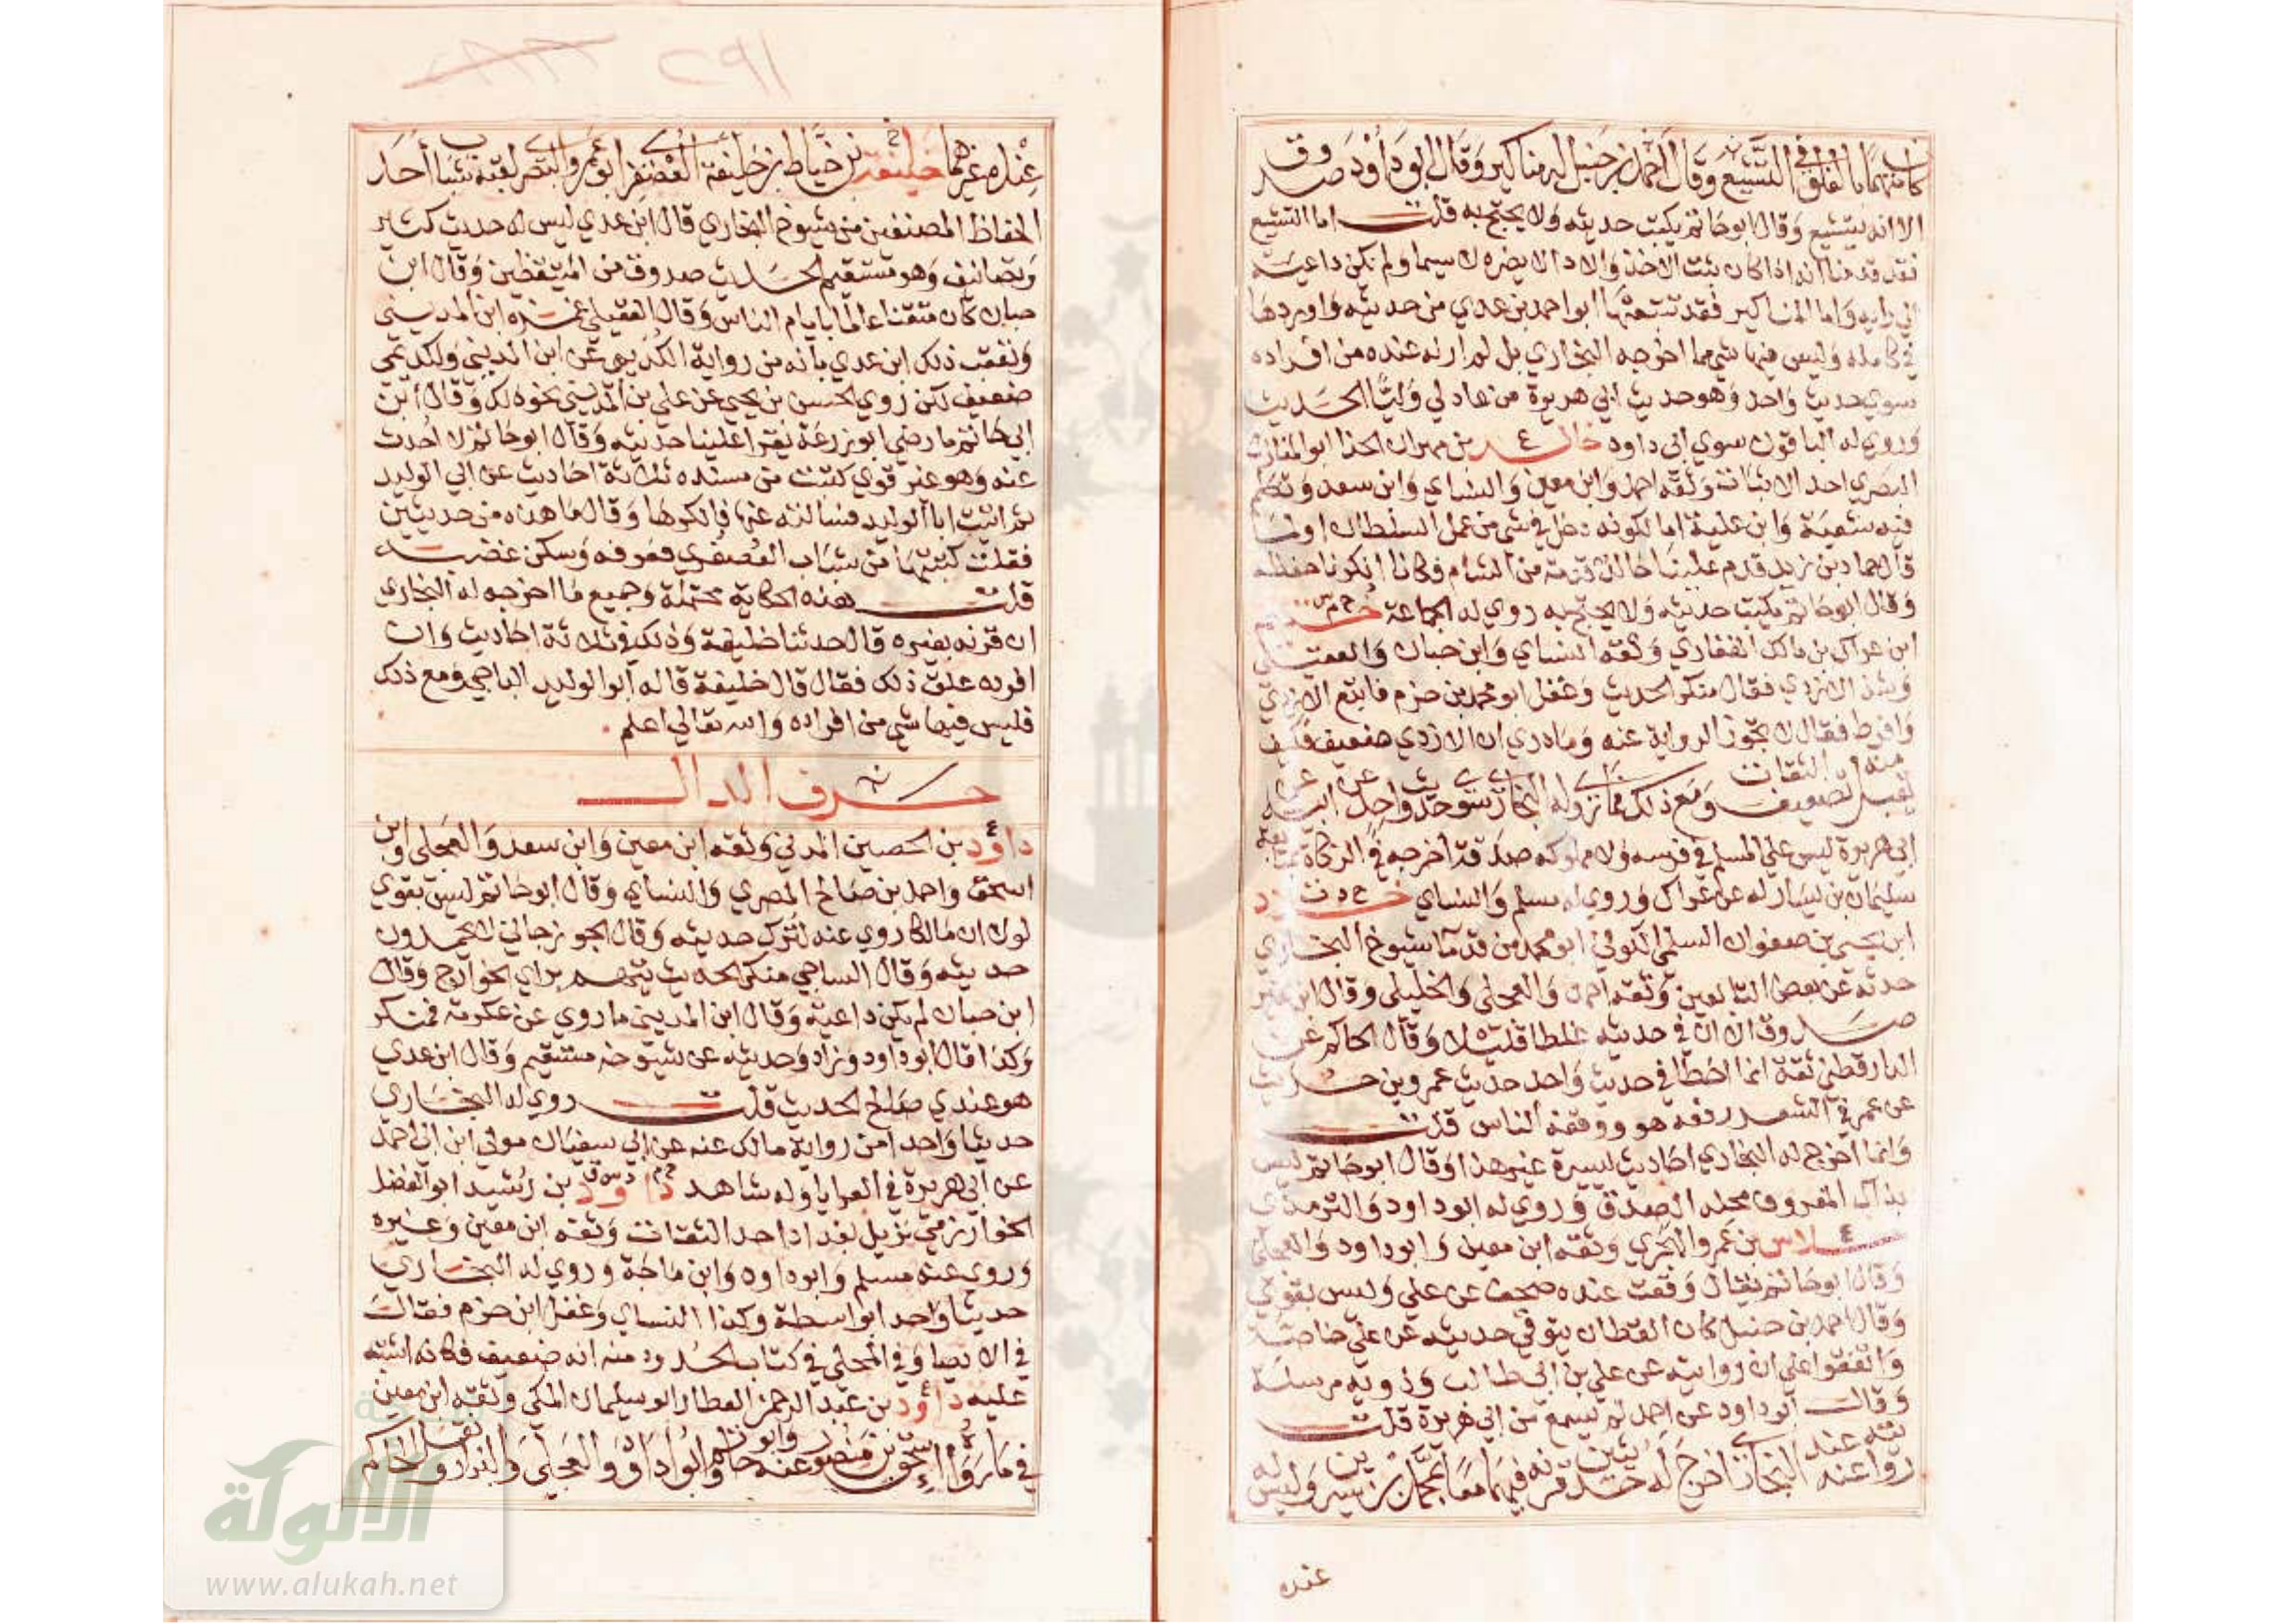 كان متهما بالغلو في التشيع وقال احمد بن حنبل له مناكير وقال ابو داود صدوق
الا انه يتشيع وقال ابو حاتم يكتب حديثه ولا يحتج به قلت اما التشيع
فقد قدمنا انه اذا كان ثبت الاخذ والادا لا يضره لا سيما ولم يكن داعية
الي رايه واما المناكير فقد تتبعها ابو احمد بن عدي من حديثه واوردها
في كامله وليس فيها شي مما اخرجه البخاري بل لم ار له عنده من افراده
سوي حديث واحد وهو حديث ابي هريرة من عاد لي وليا الحديث
وروي له الباقون سوي ابي داود خالد بن مهران الحذا ابو المنازل
البصري احد الاثبات وثقه احمد وابن معين والنساي وابن سعد وتكلم
فيه شعبة وابن علية اما لكونه دخل في شي من عمل السلطان او لما
قال حماد بن زيد قدم علينا خالد قدمة من الشام فكانا انكرنا حفظه
وقال ابو حاتم يكتب حديثه ولا يحتج به روي له الجماعة خثيم
ابن عراك بن مالك الغفاري وثقه النساي وابن حبان والعقيلي
وشذ الازدي فقال منكر الحديث وغفل ابو محمد بن حزم فاتبع الازدي
وافرط فقال لا تجوز الرواية عنه وما دري ان الازدي ضعيف فكيف
يقبل منه تضعيف الثقات ومع ذلك فما روي له البخاري سوي حديث واحد عن ابيه عن
ابي هريرة ليس علي المسلم في فرسه ولا مملوكه صدقة اخرجه في الزكاة بمتابعة
سليمان بن يسار له عن عراك وروي له مسلم والنساي خلاد
ابن يحيي بن صفوان السلمي الكوفي ابو محمد من قدما شيوخ البخاري
حدثه عن بعض التابعين وثقه احمد والعجلي والخليلي وقال ابن نمير
صدوق الا ان في حديثه غلطا قليلا وقال الحاكم عن
الدارقطني ثقة انما اخطا في حديث واحد حديث عمرو بن حريث
عن عمر في الشعر رفعه هو ووقفه الناس قلت
وانما اخرج له البخاري احاديث يسيرة غير هذا وقال ابو حاتم ليس
بذاك المعروف محله الصدق وروي له ابو داود والترمذي
خلاس بن عمرو الهجري وثقه ابن معين وابو داود والعجلي
وقال ابو حاتم يقال وقعت عنده صحف عن علي وليس بقوي
وقال احمد بن حنبل كان القطان يتوقي حديثه عن علي خاصة
واتفقوا علي ان روايته عن علي بن ابي طالب وذويه مرسلة
وقال ابو داود عن احمد لم يسمع من ابي هريرة قلت
روايته عنه عند البخاري اخرج له حديثين قرنه فيهما معا بمحمد بن سيرين وليس له
عنده
٢٩١
عنده غيرهما خليفة بن خياط بن خليفة العصفري ابو عمرو البصري لقبه شباب احد
الحفاظ المصنفين من شيوخ البخاري قال ابن عدي ليس له حديث كثير
وتصانيف وهو مستقيم الحديث صدوق من المتيقظين وقال ابن
حبان كان متقنا عالما بايام الناس وقال العقيلي غمزه ابن المديني
وتعقب ذلك ابن عدي بانه من رواية الكديمي عن ابن المديني والكديمي
ضعيف لكن روي الحسن بن يحيي عن علي بن المديني نحو ذلك وقال ابن
ابي حاتم ما رضي ابو زرعة يقرا علينا حديثه وقال ابو حاتم لا احدث
عنه وهو غير قوي كتبت من مسنده ثلاثة احاديث عن ابي الوليد
ثم اتيت ابا الوليد فسالته عنها فانكرها وقال ما هذه من حديثي
فقلت كتبتها من شباب العصفري فعرفه وسكن غضبه
قلت هذه الحكاية محتملة وجميع ما اخرجه له البخاري
ان قرنه بغيره قال حدثنا خليفة وذلك في ثلاثة احاديث وان
افرده علق ذلك فقال قال خليفة قاله ابو الوليد الباجي ومع ذلك
فليس فيها شي من افراده والله تعالي اعلم
حرف الدال
داود بن الحصين المدني وثقه ابن معين وابن سعد والعجلي وابن
اسحق واحمد بن صالح المصري والنساي وقال ابو حاتم ليس بقوي
لولا ان مالكا روي عنه لترك حديثه وقال الجوزجاني لا يحمدون
حديثه وقال الساجي منكر الحديث يتهم براي الخوارج وقال
ابن حبان لم يكن داعية وقال ابن المديني ما روي عن عكرمة فمنكر
وكذا قال ابو داود وزاد وحديثه عن شيوخه مستقيم وقال ابن عدي
هو عندي صالح الحديث قلت روي له البخاري
حديثا واحدا من رواية مالك عنه عن ابي سفيان مولي ابن ابي احمد
عن ابي هريرة في العرايا وله شاهد داود بن رشيد ابو الفضل
الخوارزمي نزيل بغداد احد الثقات وثقه ابن معين وغيره
وروي عنه مسلم وابو داود وابن ماجة وروي له البخاري
حديثا واحد ابواسطة وكذا النساي وغفل ابن حزم فقال
في الاتصا وفي المحلي في كتاب الحدود منه انه ضعيف فكانه اشتبه
عليه داود بن عبد الرحمن العطار ابو سليمان المكي وثقه ابن معين
في ما رواه اسحق بن منصور عنه وابو حاتم وابو داود والعجلي والبزار ونقل الحاكم
الألوكة
www.alukah.net